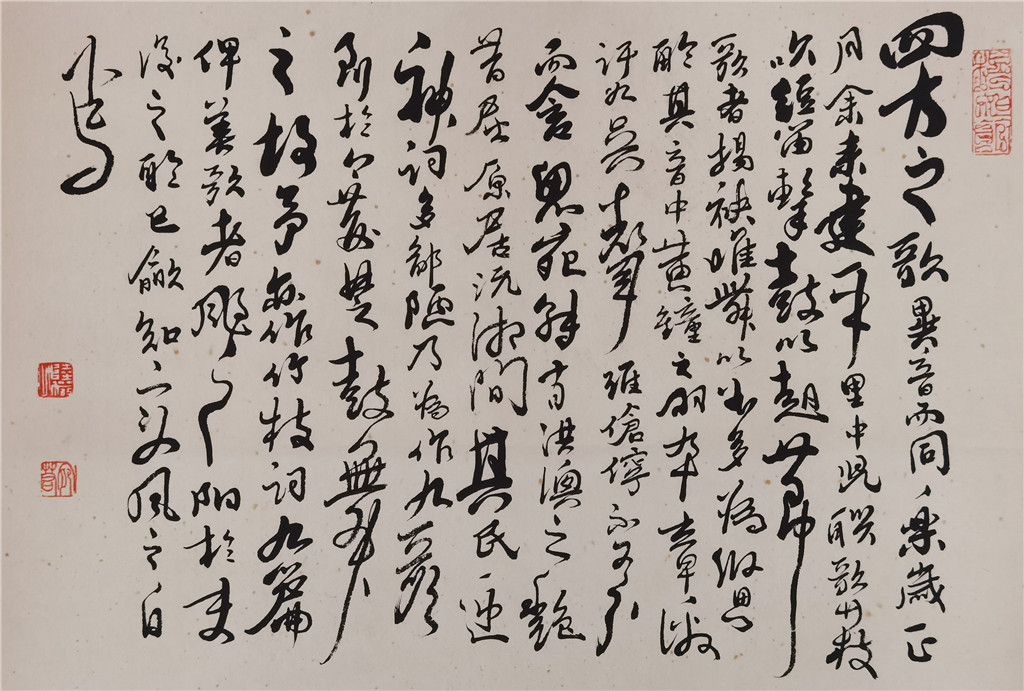 四方之歌異音而同樂歲正
月余来建平里中児聯歌竹枝
吹短笛擊鼓以赴節
歌者揚袂睢舞以曲多為賢
聆其音中黃鐘之羽卒章激
訐如吳聲雖傖儜不可分
而含思宛轉有淇澳之艷
昔屈原居沅湘間其民迎
神詞多鄙陋乃為作九歌
到於今荊楚鼓舞
之故予亦作竹枝詞九篇
俾善歌者颺之附於末
後之聆巴歈知變風之自
焉